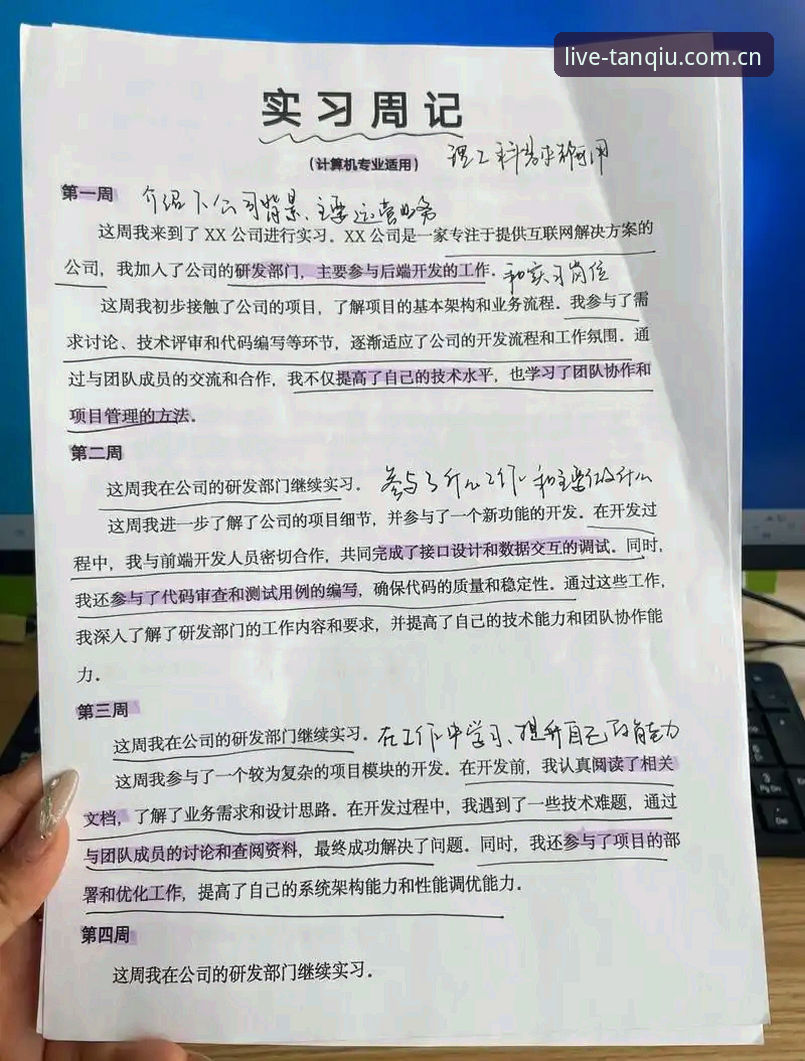 live-tanqiu.com.cn
实习周记
（计算机专业适用）
理工科类都可用
第一周
介绍下公司背景、主要运营业务
这周我来到了 XX 公司进行实习。XX 公司是一家专注于提供互联网解决方案的
公司，我加入了公司的研发部门，主要参与后端开发的工作。
和实习岗位
这周我初步接触了公司的项目，了解项目的基本架构和业务流程。我参与了需
求讨论、技术评审和代码编写等环节，逐渐适应了公司的开发流程和工作氛围。通
过与团队成员的交流和合作，我不仅提高了自己的技术水平，也学习了团队协作和
项目管理的方法。
第二周
这周我在公司的研发部门继续实习。
参与了什么工作 和主要做什么
这周我进一步了解了公司的项目细节，并参与了一个新功能的开发。在开发过
程中，我与前端开发人员密切合作，共同完成了接口设计和数据交互的调试。同时，
我还参与了代码审查和测试用例的编写，确保代码的质量和稳定性。通过这些工作，
我深入了解了研发部门的工作内容和要求，并提高了自己的技术能力和团队协作能
力。
第三周
这周我在公司的研发部门继续实习。
在工作中学习、提升自己的能力
这周我参与了一个较为复杂的项目模块的开发。在开发前，我认真阅读了相关
文档，了解了业务需求和设计思路。在开发过程中，我遇到了一些技术难题，通过
与团队成员的讨论和查阅资料，最终成功解决了问题。同时，我还参与了项目的部
署和优化工作，提高了自己的系统架构能力和性能调优能力。
第四周
这周我在公司的研发部门继续实习。